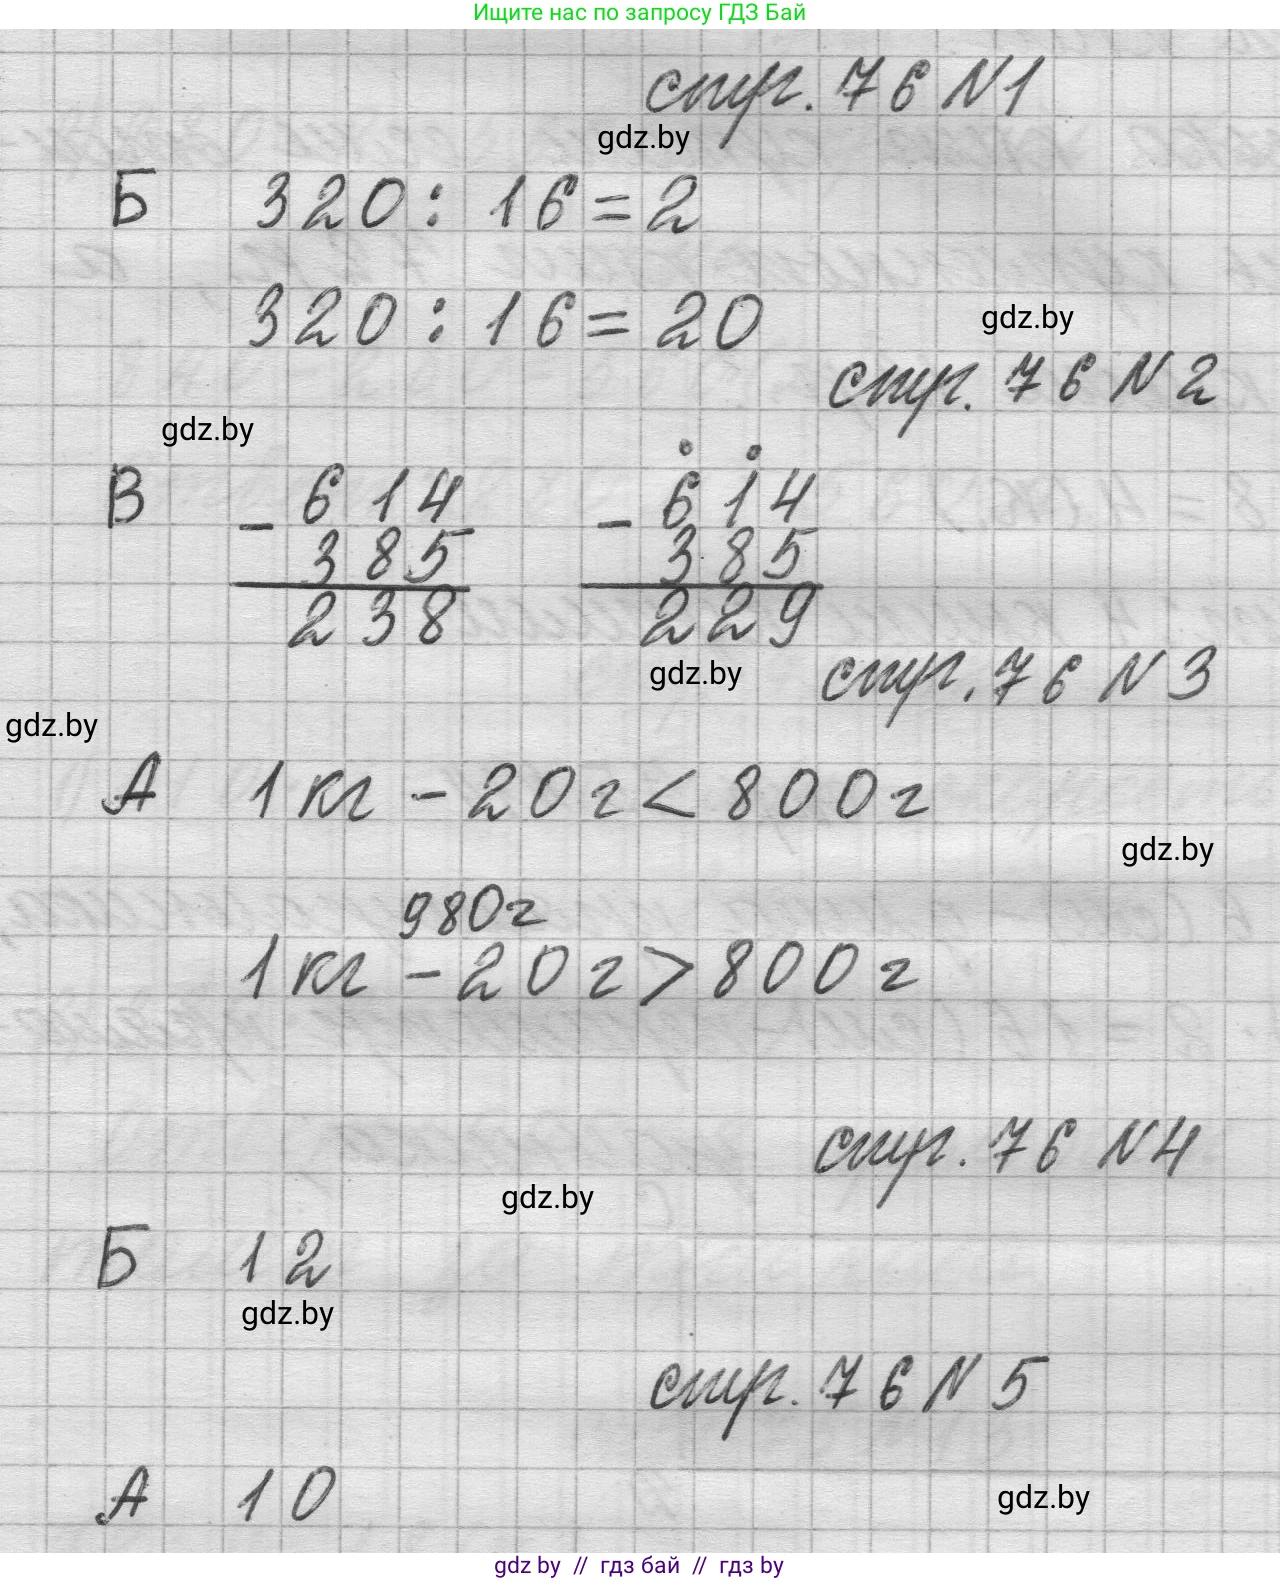 Ищите нас по запросу ГДЗ Бай
стр. 76 N1
gdz.by
Б 320 : 16 = 2
320 : 16 = 20
gdz.by
стр. 76 N 2
gdz.by
В - 614 - 614
385 385
238 229
gdz.by
стр. 76 N 3
gdz.by
А 1 кг - 20 г < 800 г
gdz.by
980 г
1 кг - 20 г > 800 г
стр. 76 N 4
gdz.by
Б 12
gdz.by
стр. 76 N 5
А 10
gdz.by
gdz by // гдз бай // гдз by